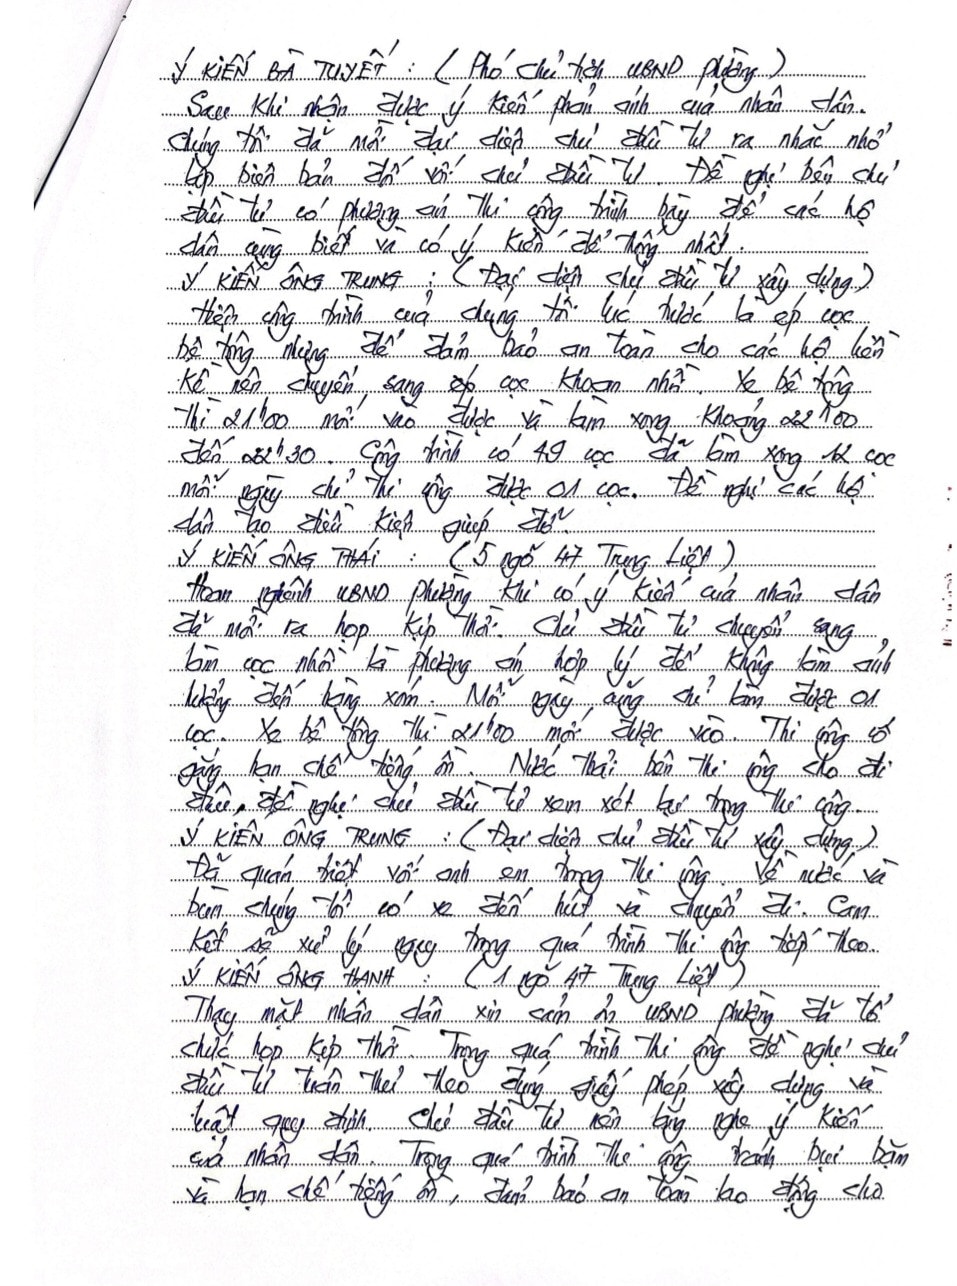 Ý KIẾN BÀ TUYẾT : (Phó chủ tịch UBND phường)
Sau khi nhận được ý kiến phản ánh của nhân dân.
Chúng tôi đã mời đại diện chủ đầu tư ra nhắc nhở
lập biên bản đối với chủ đầu tư. Đề nghị bên chủ
đầu tư có phương án thi công trình bày để các hộ
dân cùng biết và có ý kiến để thống nhất.
Ý KIẾN ÔNG TRUNG : (Đại diện chủ đầu tư xây dựng)
Hiện công trình của chúng tôi lúc trước là ép cọc
bê tông nhưng để đảm bảo an toàn cho các hộ liền
kề nên chuyển sang ép cọc khoan nhồi. Xe bê tông
thì 21h00 mới vào được và làm xong khoảng 22h00
đến 22h30. Công trình có 49 cọc đã làm xong 12 cọc
mỗi ngày chỉ thi công được 01 cọc. Đề nghị các hộ
dân tạo điều kiện giúp đỡ.
Ý KIẾN ÔNG THÁI : (5 ngõ 47 Trung Liệt)
Hoan nghênh UBND phường khi có ý kiến của nhân dân
đã mời ra họp kịp thời. Chủ đầu tư chuyển sang
làm cọc nhồi là phương án hợp lý để không làm ảnh
hưởng đến hàng xóm. Mỗi ngày cũng chỉ làm được 01
cọc. Xe bê tông thì 21h00 mới được vào. Thi công cố
gắng hạn chế tiếng ồn. Nước thải bên thi công cho đi
đâu, đề nghị chủ đầu tư xem xét lại trong thi công.
Ý KIẾN ÔNG TRUNG : (Đại diện chủ đầu tư xây dựng)
Đã quán triệt với anh em trong thi công. Về nước và
bùn chúng tôi có xe đến hút và chuyển đi. Cam
kết sẽ xử lý ngay trong quá trình thi công tiếp theo.
Ý KIẾN ÔNG HẠNH : (1 ngõ 47 Trung Liệt)
Thay mặt nhân dân xin cảm ơn UBND phường đã tổ
chức họp kịp thời. Trong quá trình thi công đề nghị chủ
đầu tư tuân thủ theo đúng giấy phép xây dựng và
luật quy định. Chủ đầu tư nên lắng nghe ý kiến
của nhân dân. Trong quá trình thi công tránh bụi bặm
và hạn chế tiếng ồn, đảm bảo an toàn lao động cho